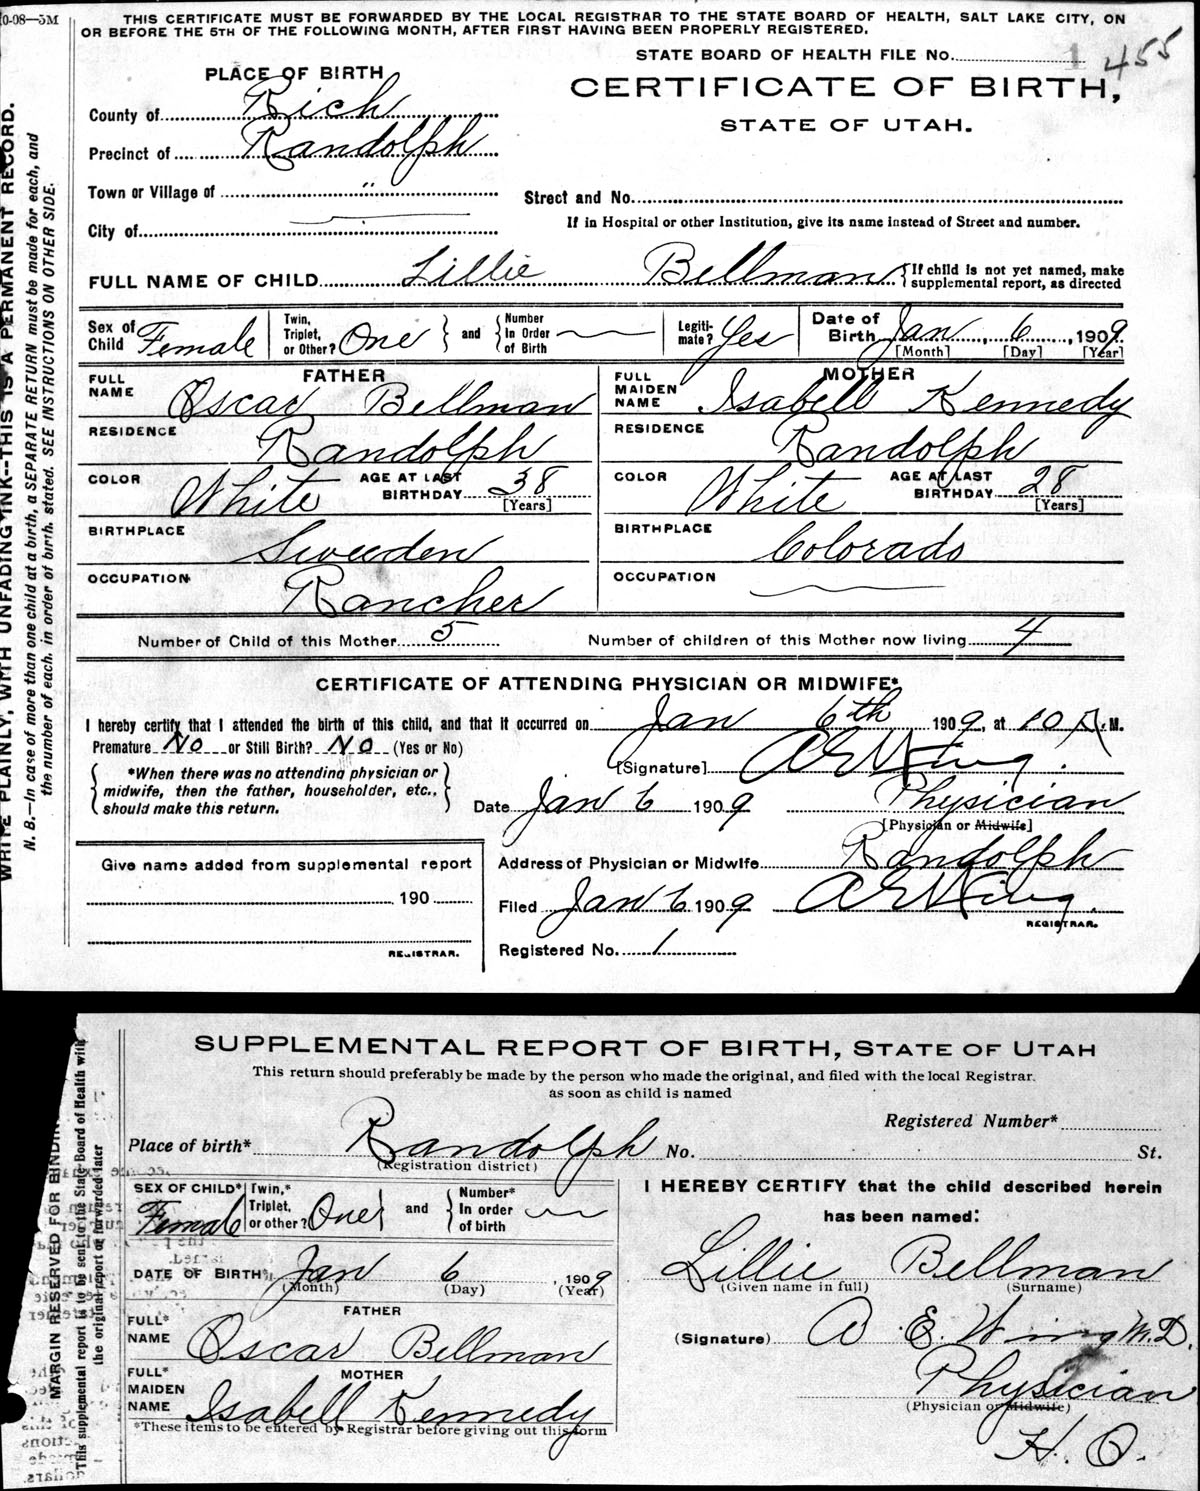 0-08—5M
THIS CERTIFICATE MUST BE FORWARDED BY THE LOCAL REGISTRAR TO THE STATE BOARD OF HEALTH, SALT LAKE CITY, ON
OR BEFORE THE 5TH OF THE FOLLOWING MONTH, AFTER FIRST HAVING BEEN PROPERLY REGISTERED.
STATE BOARD OF HEALTH FILE No. 1 455
PLACE OF BIRTH
CERTIFICATE OF BIRTH,
STATE OF UTAH.
County of Rich
Precinct of Randolph
Town or Village of "
Street and No.
City of
If in Hospital or other Institution, give its name instead of Street and number.
FULL NAME OF CHILD Lillie Bellman {If child is not yet named, make supplemental report, as directed
Sex of Child Female Twin, Triplet, or Other? One } and { Number In Order of Birth — Legiti-mate? Yes Date of Birth Jan 6, 1909.
[Month] [Day] [Year]
FATHER
FULL NAME Oscar Bellman
RESIDENCE Randolph
COLOR White AGE AT LAST BIRTHDAY 38
[Years]
BIRTHPLACE Sweeden
OCCUPATION Rancher
MOTHER
FULL MAIDEN NAME Isabell Kennedy
RESIDENCE Randolph
COLOR White AGE AT LAST BIRTHDAY 28
[Years]
BIRTHPLACE Colorado
OCCUPATION
Number of Child of this Mother 5 Number of children of this Mother now living 4
CERTIFICATE OF ATTENDING PHYSICIAN OR MIDWIFE*
I hereby certify that I attended the birth of this child, and that it occurred on Jan 6th 1909, at 10 A.M.
Premature No or Still Birth? No (Yes or No)
[Signature] A E Wing.
*When there was no attending physician or
midwife, then the father, householder, etc.,
should make this return.
Date Jan 6 1909 Physician
[Physician or Midwife]
Address of Physician or Midwife Randolph
Filed Jan 6 1909 A E Wing.
REGISTRAR.
Registered No. 1
Give name added from supplemental report
190
REGISTRAR.
WRITE PLAINLY, WITH UNFADING INK--THIS IS A PERMANENT RECORD.
N. B.—In case of more than one child at a birth, a SEPARATE RETURN must be made for each, and
the number of each, in order of birth, stated. SEE INSTRUCTIONS ON OTHER SIDE.
SUPPLEMENTAL REPORT OF BIRTH, STATE OF UTAH
This return should preferably be made by the person who made the original, and filed with the local Registrar.
as soon as child is named
Registered Number*
Place of birth* Randolph No. St.
(Registration district)
SEX OF CHILD* Female Twin,* Triplet, or other? One } and { Number* In order of birth
DATE OF BIRTH* Jan 6, 1909
(Month) (Day) (Year)
FATHER
FULL* NAME Oscar Bellman
MOTHER
FULL* MAIDEN NAME Isabell Kennedy
*These items to be entered by Registrar before giving out this form
I HEREBY CERTIFY that the child described herein
has been named:
Lillie Bellman
(Given name in full) (Surname)
(Signature) A. E. Wing M.D.
Physician
(Physician or Midwife)
H. O.
MARGIN RESERVED FOR BINDIN
This supplemental report is to be sent to the State Board of Health with
the original report or forwarded later